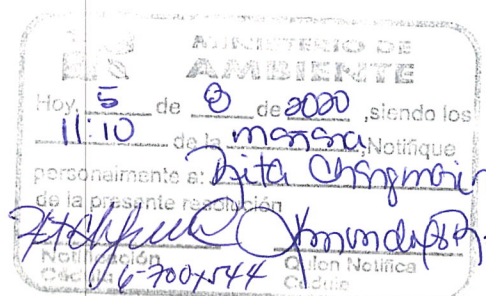 MINISTERIO DE
AMBIENTE
Hoy, 5 de 8 de 2020, siendo los
11:10 de la mañana, Notifique
personalmente a: Rita Changmarin
de la presente resolución
Notificación Quien Notifica
Cédula Cédula